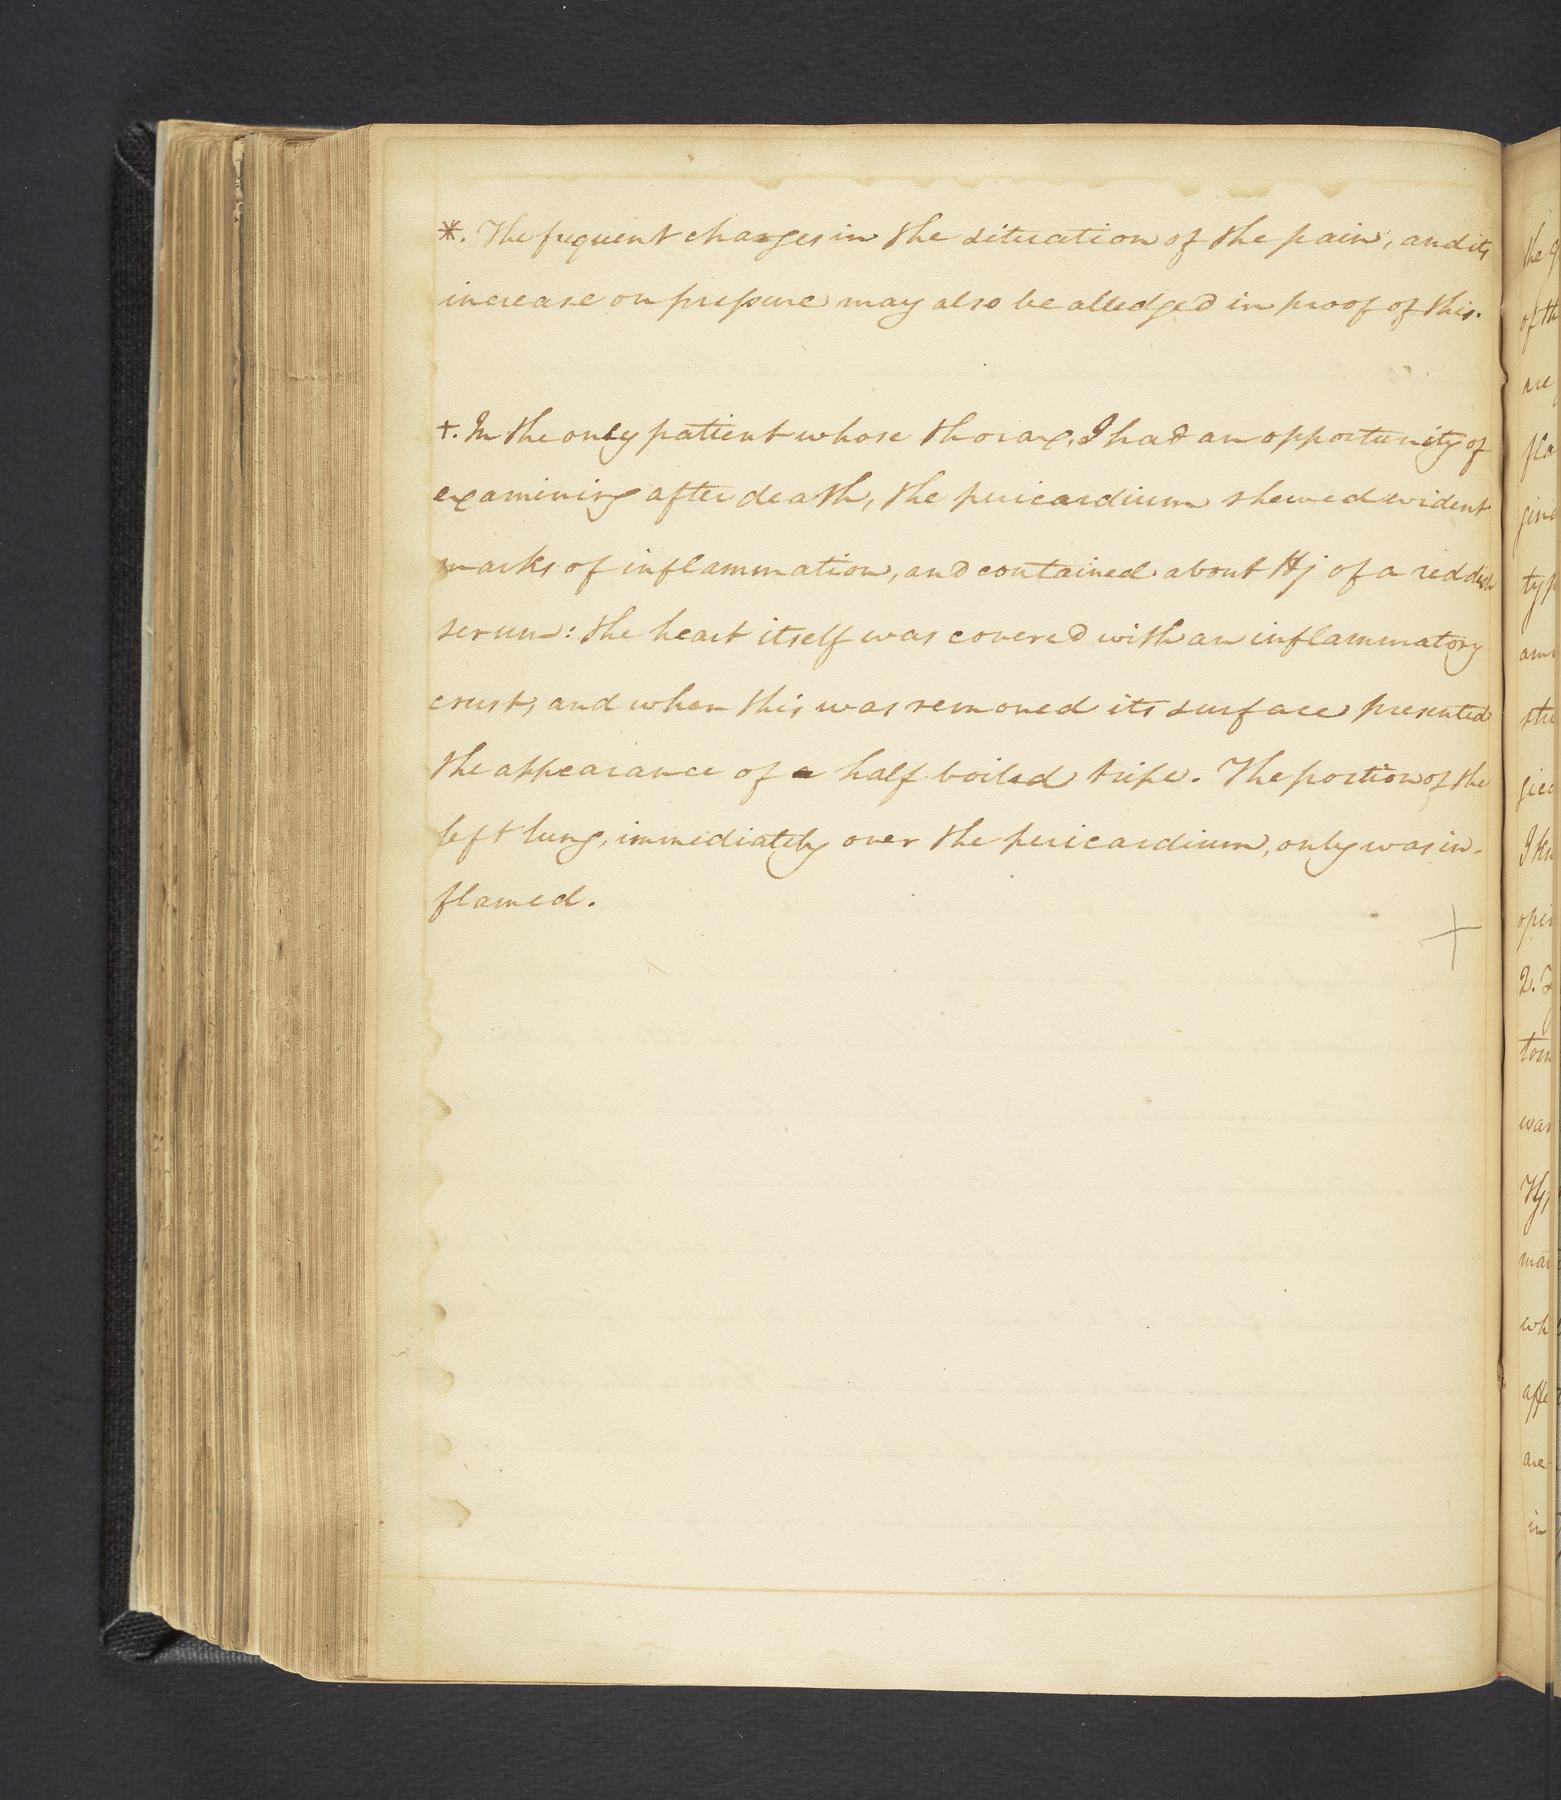 *. The frequent changes in the situation of the pain, and its
increase on pressure may also be alledged in proof of this.
+. In the only patient whose thorax, I had an opportunity of
examining after death, the pericardium shewed evident
marks of inflammation, and contained about ℔j of a reddish
serum: the heart itself was covered with an inflammatory
crust, and when this was removed its surface presented
the appearance of a half boiled tripe. The portion of the
left lung, immediately over the pericardium, only was in-
flamed.
+
the
of th
are
fla
gin
typ
am
stre
I kn
opin
2.
tom
was
Hy
man
wh
affe
are
in